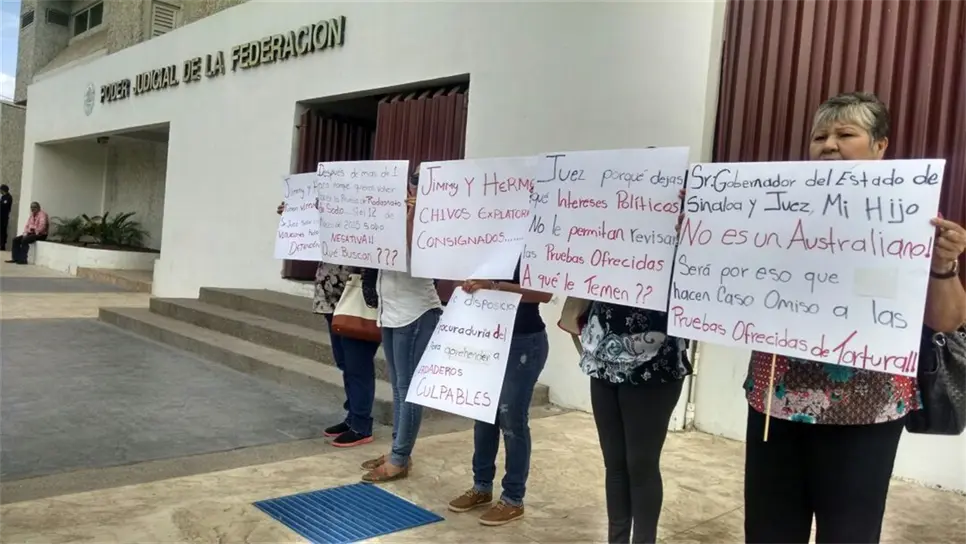 PODER JUDICIAL DE LA FEDERACION
Jimmy
Detención
Después de mas de 1
Prueba de Rodizonato
de Sodio. Si el 12 de
NEGATIVA!!
Que Buscan???
Jimmy y Herme
CHIVOS EXPIATORI
CONSIGNADOS....
disposición
ocuraduría del
para aprehender a
RDADEROS
CULPABLES
Juez porqué dejas
qué Intereses Políticos
No le permitan revisar
las Pruebas Ofrecidas
A qué le Temen??
Sr. Gobernador del Estado de
Sinaloa y Juez, Mi Hijo
No es un Australiano!
Será por eso que
hacen Caso Omiso a las
Pruebas Ofrecidas de Tortura!!